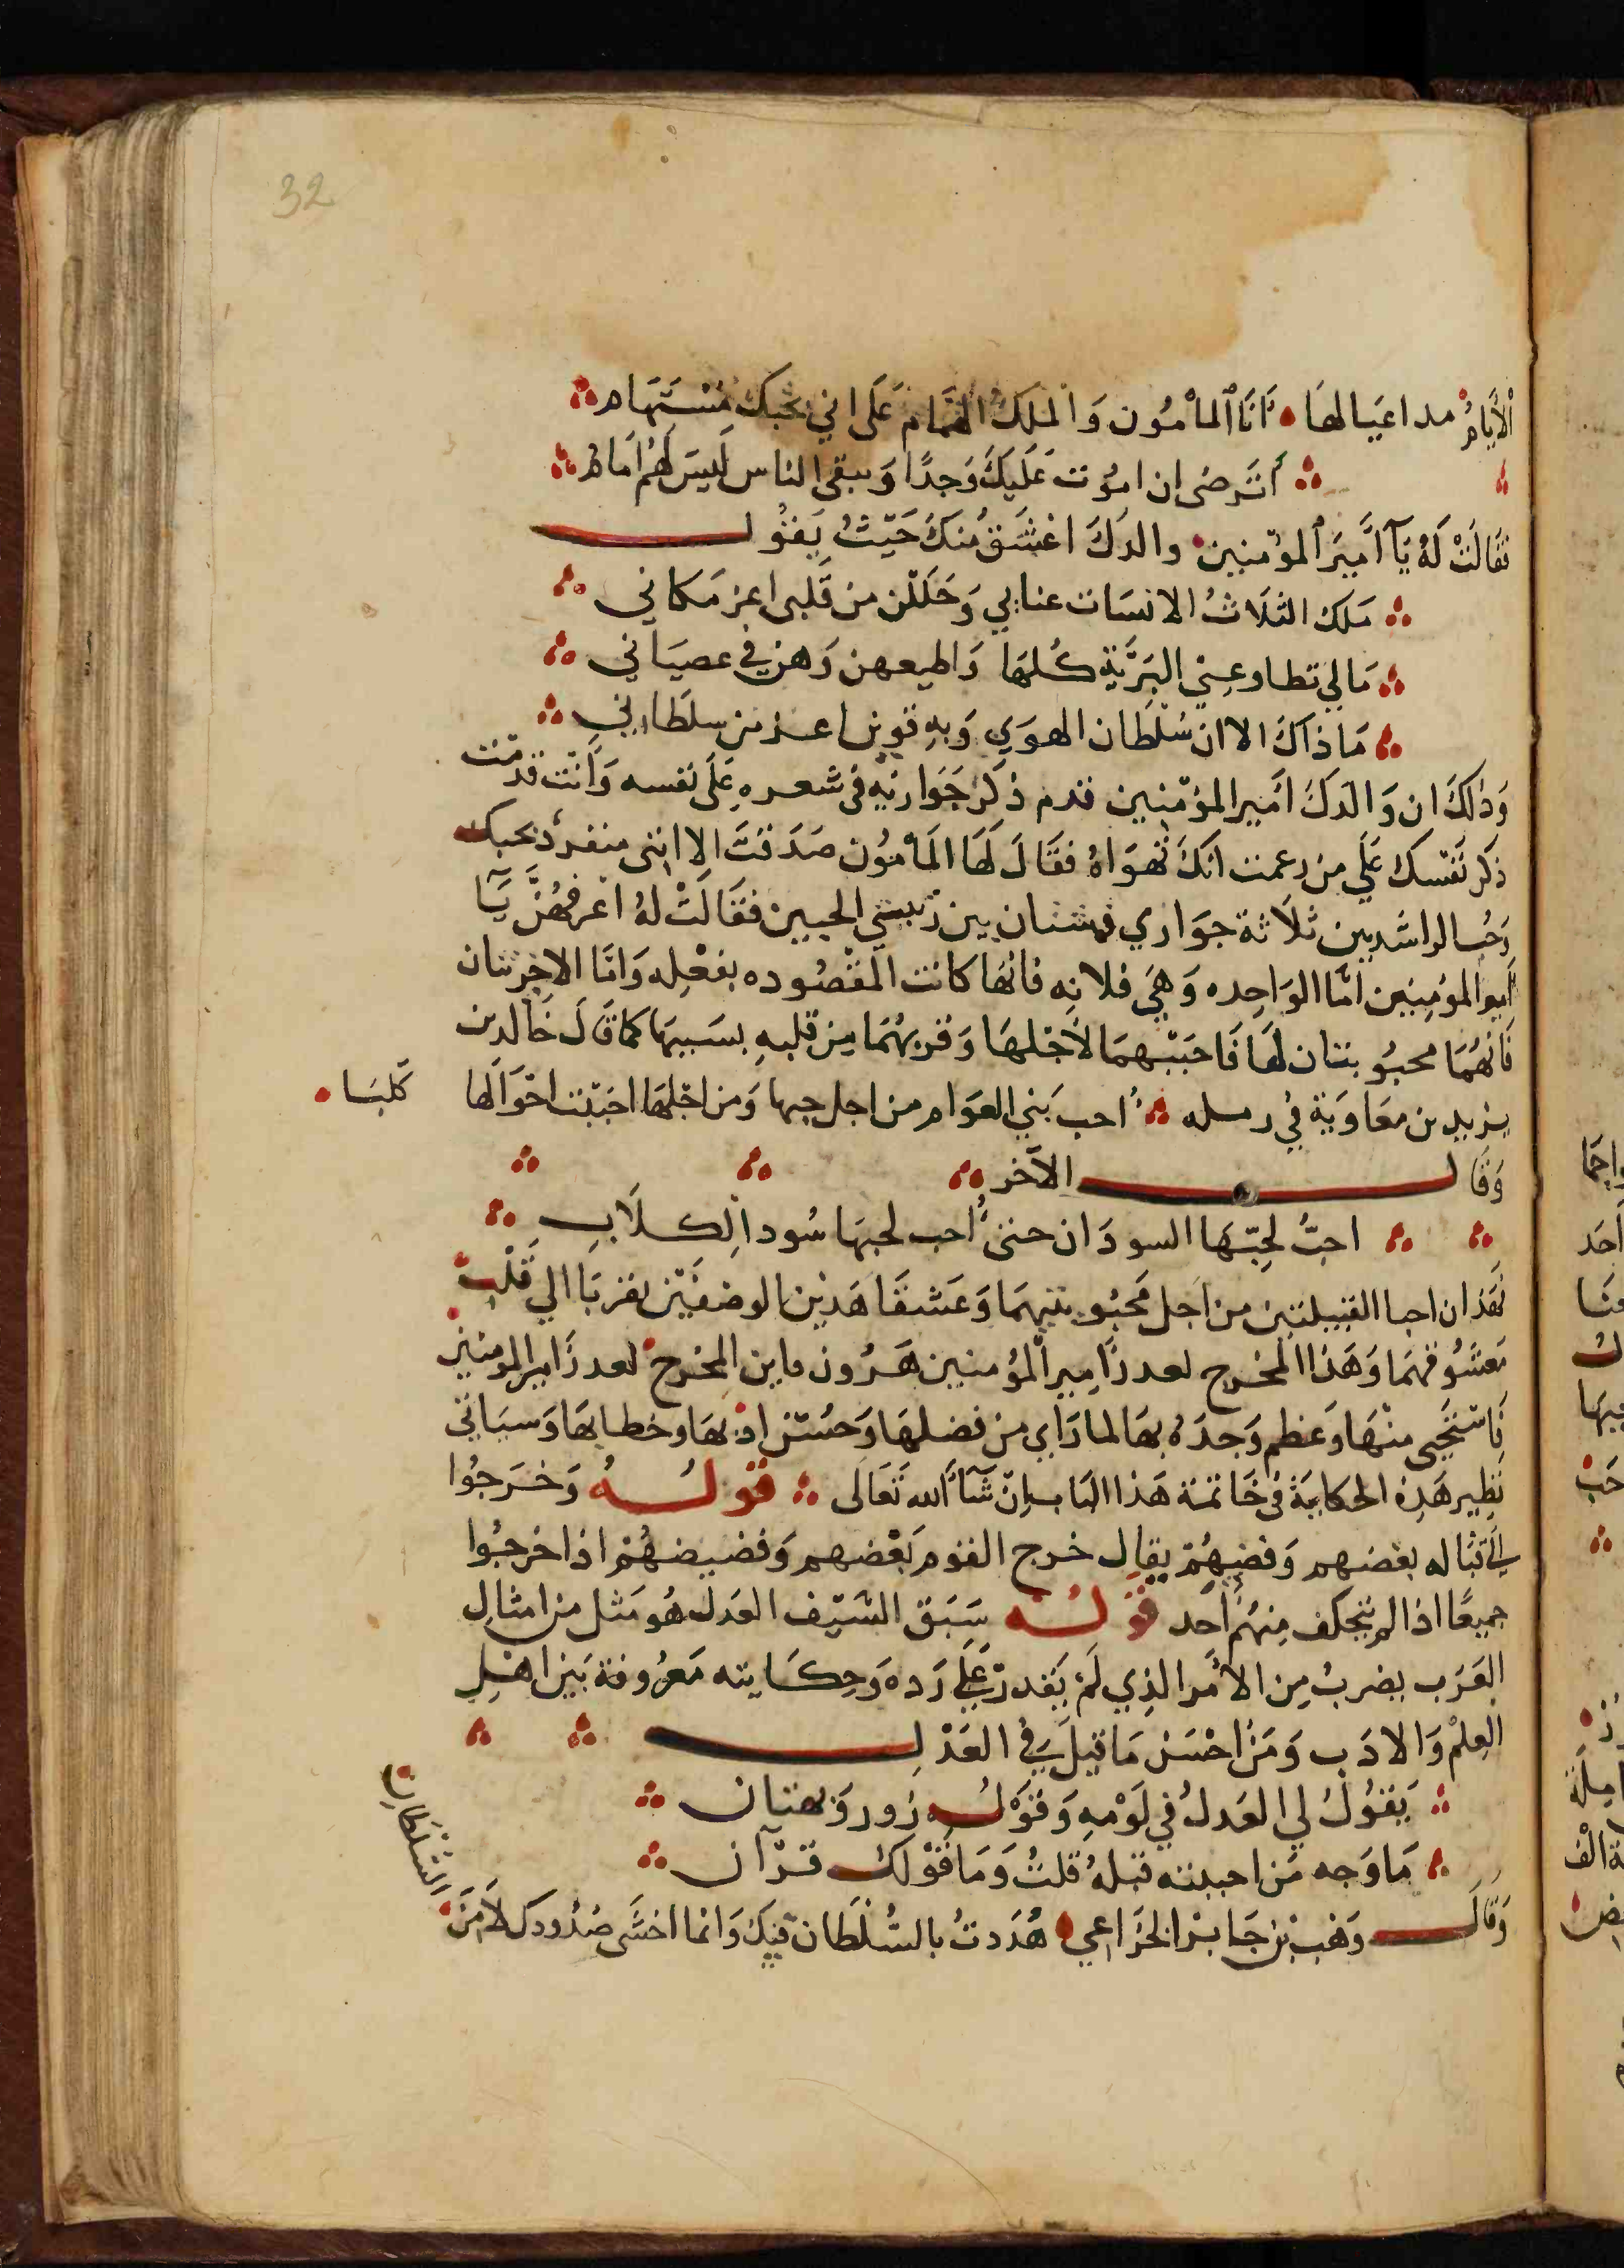 32
الأيامُ مداعيا لها • أنَا ٱلمأمُون وَالملكُ الهمام عَلَى اني بحبك مُسْتَهَام
أترضى ان امُوت عَلَيكَ وَجدًا وَيبقى الناس لَيسَ لهُم اَمَامُ
فقَالَتْ لَهُ يَآ أَمِيرَ ٱلمؤمنين والدَكَ اعْشَقُ مِنكَ حَيثُ يَقُول
مَلك الثلَاثُ الانسَات عنابي وَحَلَلن من قَلبى اعز مَكاني
مَالي تطاوعنِي البَرَيّة كُلهَا وَاطيعهن وَهن في عصيَاني
مَا ذاكَ الا ان سُلْطَان الهوَي وَبهِ قوين اعز من سلطَاني
وَذلكَ ان وَالدكَ اَمَير المؤمنين قدم ذكرَ جَوَاريهِ فى شعره عَلَى نفسه وَأنْت قدمْت
ذكر نَفْسك عَلَي من زعمت انكَ تهوَاهُ فقَالَ لَهَا المَأمُون صَدَقتَ الا اننى منفردٌ بحبك
وَحُب الراشدين ثلاَثة جوَاري فشتان بين الحبين فقَالَتْ لهُ اعرفهُنَّ يَآ
أمير المؤمِنين امَّا الوَاحِده وَهيَ فلانِه فانهَا كانت المَقْصُوده بفعْلِه وَامَّا الاخرتان
فَانهُمَا محبُوبتان لهَا فَاحَبَبْهمَا لأجْلهَا وَقربهُمَا مِن قلبهِ بسَببهَا كمَا قَالَ خَالد بن
يزيد بن معَاويَة في رمله احب بَني العوَام من اجل حبها وَمن اجْلهَا احبَبْت اخوَالها كَلبَا
وَقَال الآخر
احبُّ لحبّهَا السودَان حتىٰ أحب لحبهَا سُود الِكلَابِ
فهَذان احبا القبيلتين من اجَل مَحبُوبتيهمَا وَعَشقَا هَذين الوصفَيْن تقربَا الي قَلْب
مَعشُوقهمَا وَهَذا المَخرج لعدر أمِير المُؤمنين هَرُون ماين المِخرج لعدر أمير المومنين
فَاسْتحَيى منْهَا وَعظم وَجدَهُ بهَا لما رَأي من فضلهَا وَحُسْن ادبهَا وخطابهَا وَسيَاتى
نَظِير هَذِهِ الحكايَة في خَاتمة هَذا البَاب إِنْ شَآء ٱلله تَعَالَى قوله وَخرَجُوا
الي قتاله بعْضهم وَقضهُمْ يقال خرج القوم بَعْضهم وَقضيضهُمْ اذا خرجُوا
جميعًا اذا لم يتخلف مِنهُم أحَد قوله سَبَق السَيْف العَدل هُو مَثل من امثالِ
العَرَب يضربُ مِن الأمْر الذِي لَمْ يَقدر عَلَي رَده وَحِكَايته مَعرُوفة بَين اهْلِ
العِلمْ وَالادَب وَمَن احْسَن مَا قيلَ في العَدْل
يَقُولُ لي العَدلُ في لَوْمهِ وَقَوْلهُ زور وَبهتان
مَا وَجه مَن احببته قبلهُ قلتُ وَمَا قَوْلك قرْآن
وَقَالَ وَهْب بْن جَابر الخُزَاعي هُدَدتُ بالسُّلْطَان فيكِ وَانما اخشَى صُدُودكِ لاَ مِنَ
السُلطَانِ